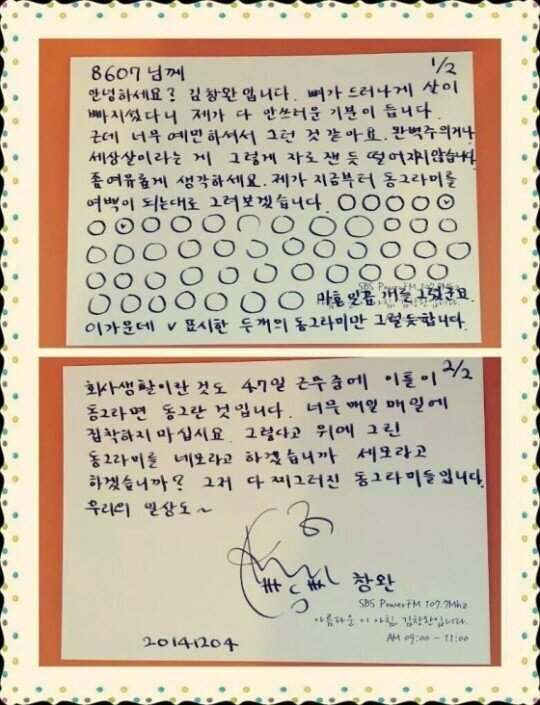 8607님께 1/2
안녕하세요? 김창완입니다. 뼈가 드러나게 살이
빠지셨다니 제가 다 안쓰러운 기분이 듭니다.
근데 너무 예민하셔서 그런 것 같아요. 완벽주의거나
세상살이라는 게 그렇게 자로 잰 듯 떨어지지 않습니다.
좀 여유롭게 생각하세요. 제가 지금부터 동그라미를
여백이 되는대로 그려보겠습니다.
SBS PowerFM 107.7Mhz
마흔일곱 개를 그렸군요.
이 가운데 v 표시한 두개의 동그라미만 그럴듯합니다.
2/2
회사생활이란것도 47일 근무중에 이틀이
동그라면 동그란 것입니다. 너무 매일 매일에
집착하지 마십시요. 그렇다고 위에 그린
동그라미를 네모라고 하겠습니까 세모라고
하겠습니까? 그저 다 찌그러진 동그라미들입니다.
우리의 일상도~
창완
SBS PowerFM 107.7Mhz
아름다운 이 아침, 김창완입니다.
20141204
AM 09:00 - 11:00